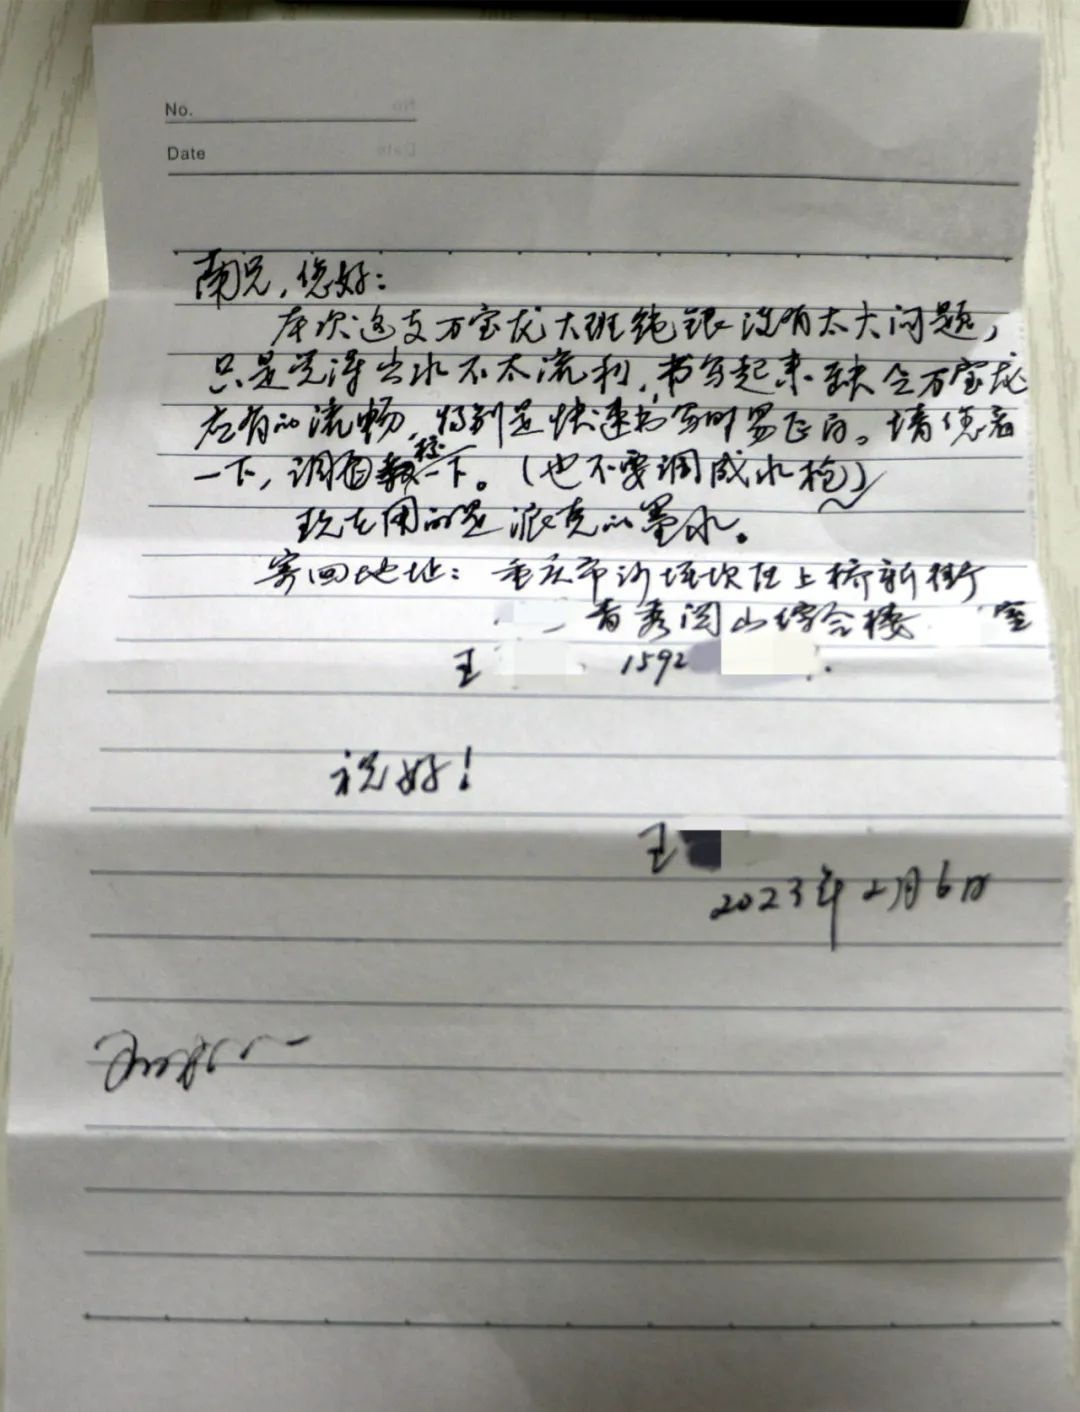 No.
Date
南兄，您好：
本次这支万宝龙大班纯银没有太大问题，
只是觉得出水不太流利，书写起来缺乏万宝龙
应有的流畅，特别是快速书写时易飞白。请您看
一下，调校一下。（也不要调成水枪）
现在用的是派克的墨水。
寄回地址：重庆市沙坪坝区上桥新街
青秀阅山综合楼 室
王 1592
祝好！
王
2023年2月6日